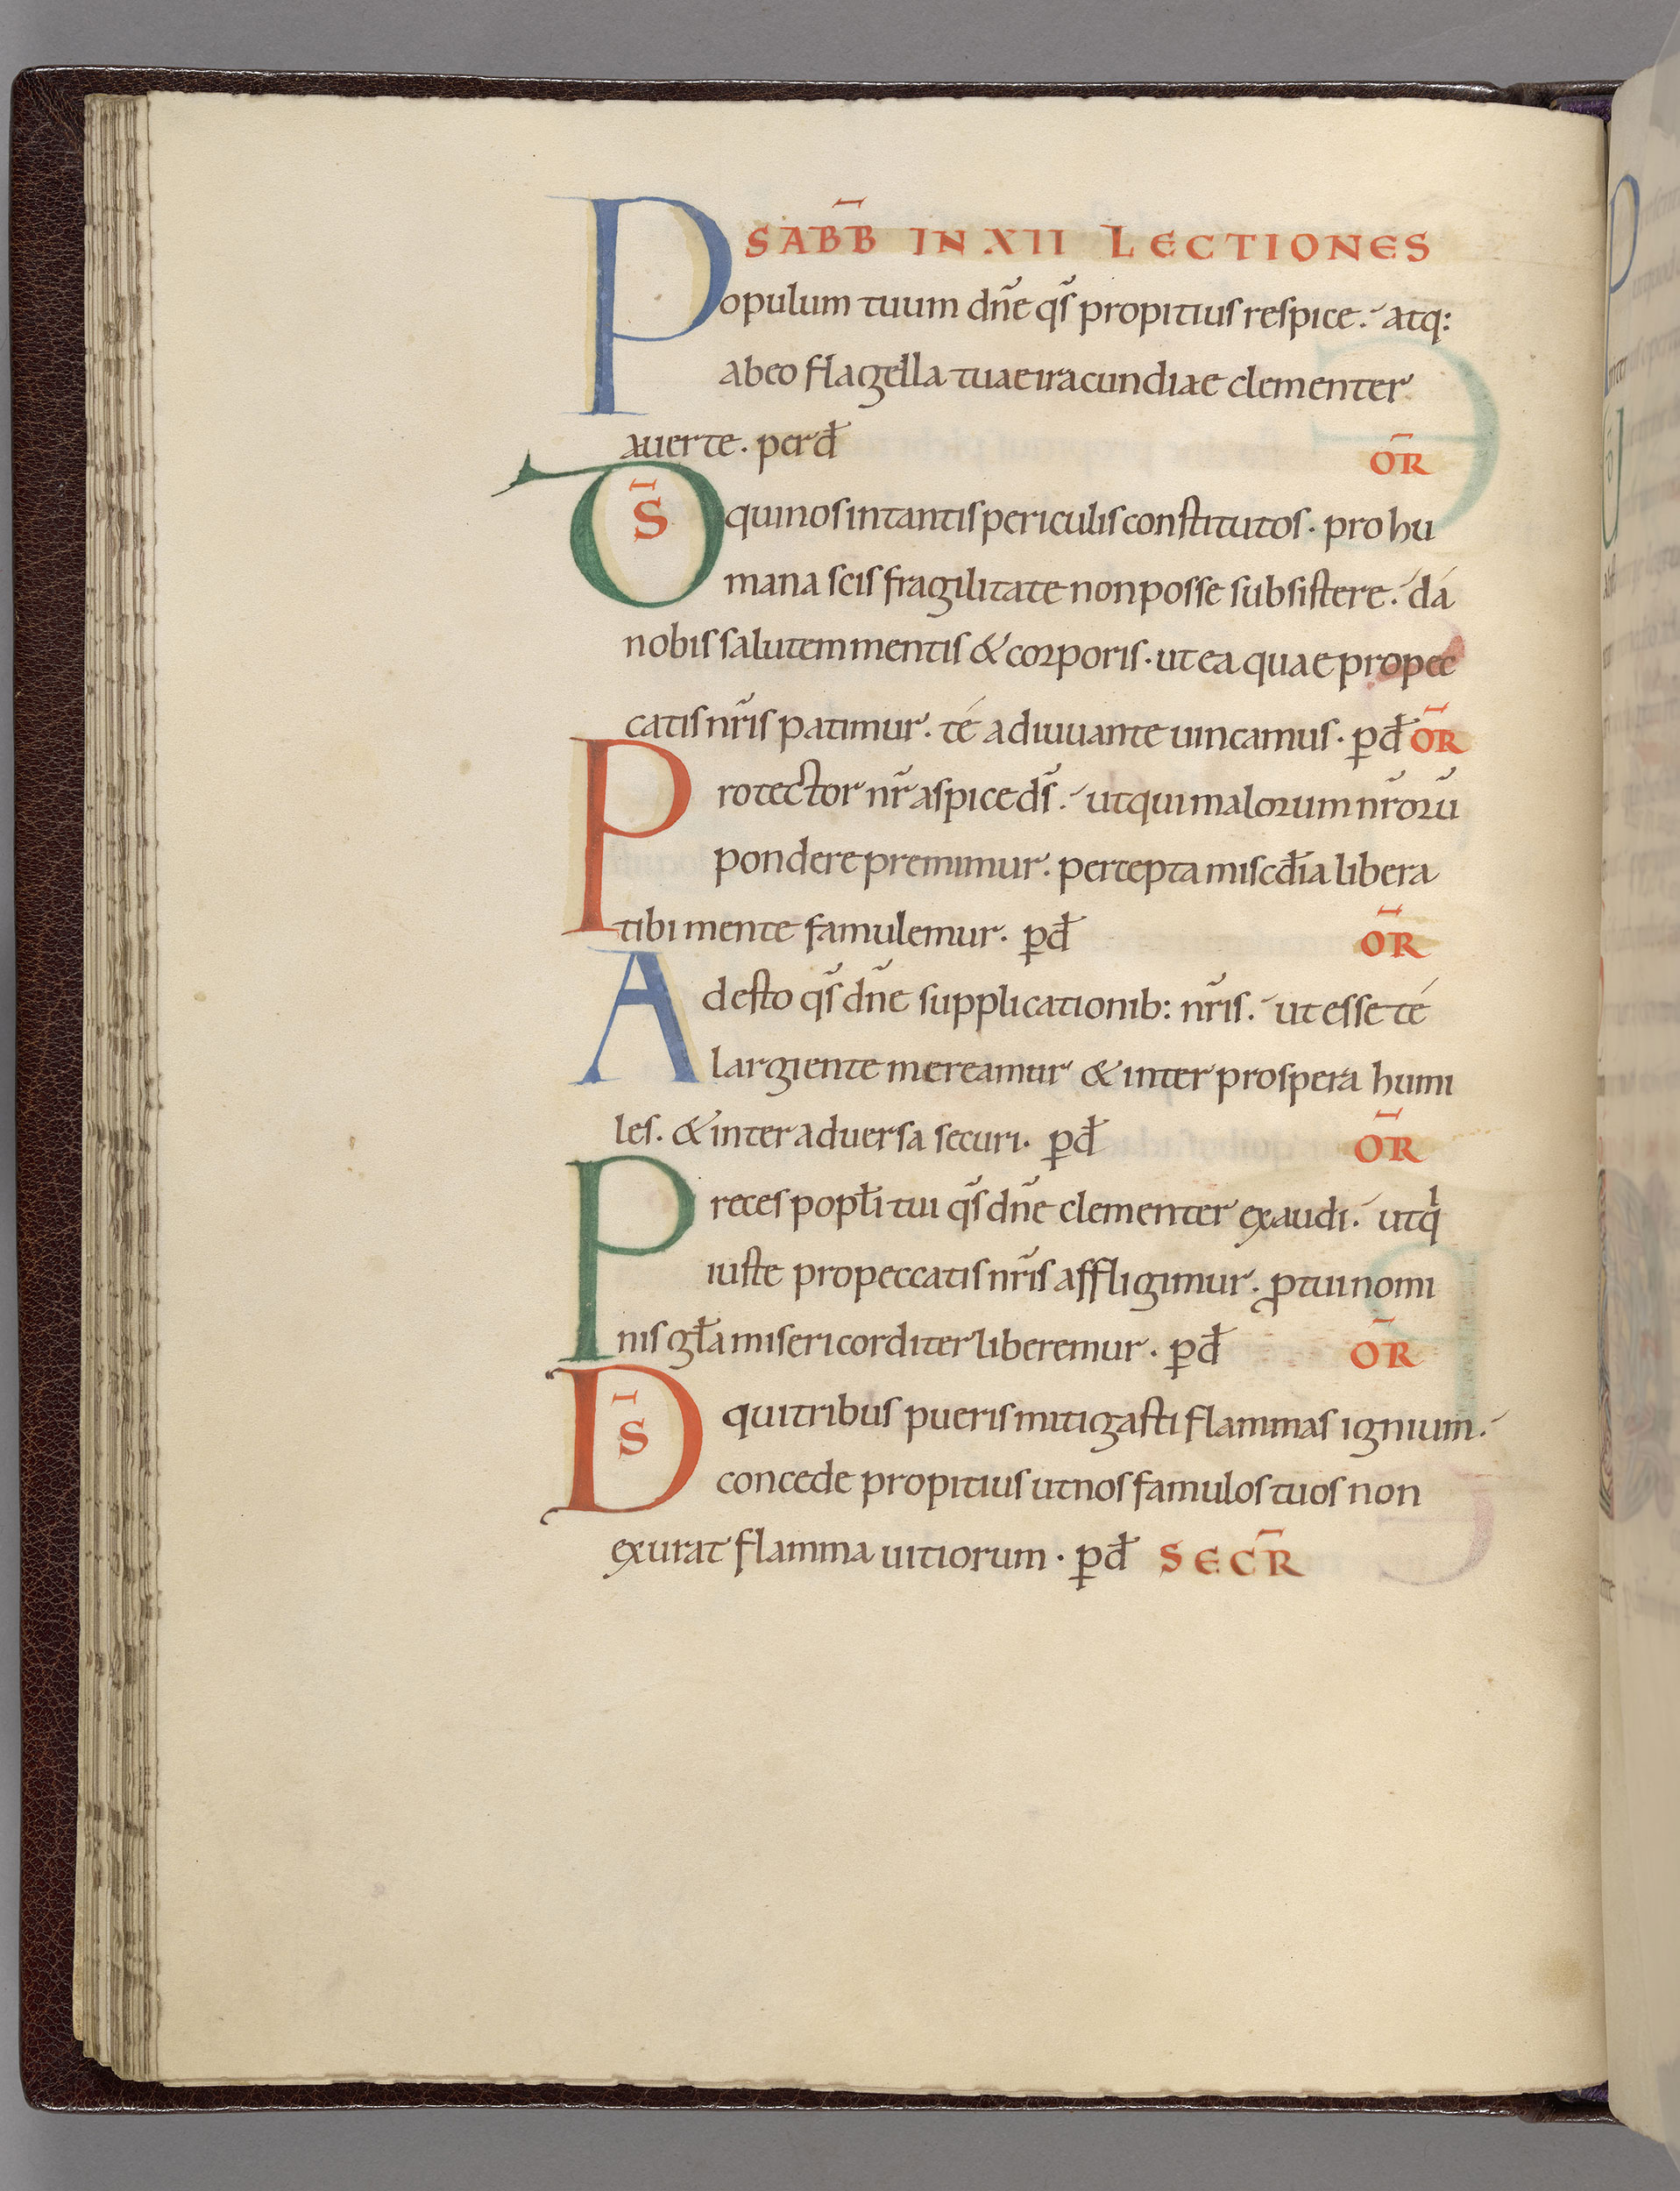 SAB̄B IN XII LECTIONES
Populum tuum dn̄e qs̄ propitius respice. atq:
ab eo flagella tuae iracundiae clementer
auerte. per đ OR̄
DS̄ qui nos in tantis periculis constitutos. pro hu
mana scis fragilitate non posse subsistere. dá
nobis salutem mentis & corporis. ut ea quae pro pec
catis nr̄is patimur. té adiuuante uincamus. ꝑ đ OR̄
Protector nr̄ aspice ds̄. ut qui malorum nr̄orū
pondere premimur. percepta miscđia libera
tibi mente famulemur. ꝑ đ OR̄
Adesto qs̄ dn̄e supplicationib: nr̄is. ut esse té
largiente mereamur & inter prospera humi
les. & inter aduersa securi. ꝑ đ OR̄
Preces popłi tui qs̄ dn̄e clementer exaudi. ut qͥ
iuste pro peccatis nr̄is affligimur. ꝓ tui nomi
nis gła misericorditer liberemur. ꝑ đ OR̄
DS̄ qui tribus pueris mitigasti flammas ignium.
concede propitius ut nos famulos tuos non
exurat flamma uitiorum. ꝑ đ SECR̄